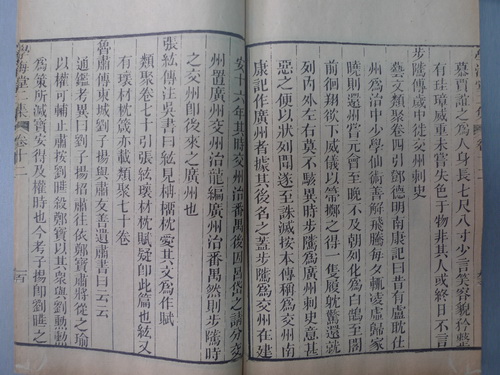 慕賈誼之爲人身長七尺八寸少言笑容貌矜嚴
有珪璋威重未嘗失色于物非其人或終日不言
步隲傳歲中徙交州刺史
藝文類聚卷四引鄧德明南康記曰昔有盧耽仕
州爲治中少學仙術善解飛騰每夕輒凌虛歸家
曉則還州嘗元會至曉不及朝列化爲白鵠至閣
前徊翔欲下威儀以箒擲之得一隻履耽驚還就
列内外左右莫不駭異時步隲爲廣州刺史意甚
惡之便以狀列聞遂至誅滅按本傳稱爲交州南
康記作廣州者據其後名之蓋步隲爲交州在建
安十六年其時交州治番禺後因呂岱之請分交
州置廣州交州治龍編廣州治番禺然則步隲時
之交州卽後來之廣州也
張紘傳注吳書曰紘見柟榴枕愛其文爲作賦
類聚卷七十引張紘瓌材枕賦疑卽此篇也紘又
有瓌材枕箴亦載類聚七十卷
魯肅傳東城劉子揚與肅友善遺肅書曰云云
通鑑考異曰劉子揚招肅往依鄭寶肅將從之瑜
以權可輔止肅按劉曄殺鄭寶以其衆與劉勳勳
爲策所滅寶安得及權時也今考子揚卽劉曄之
學海堂二集 卷十二